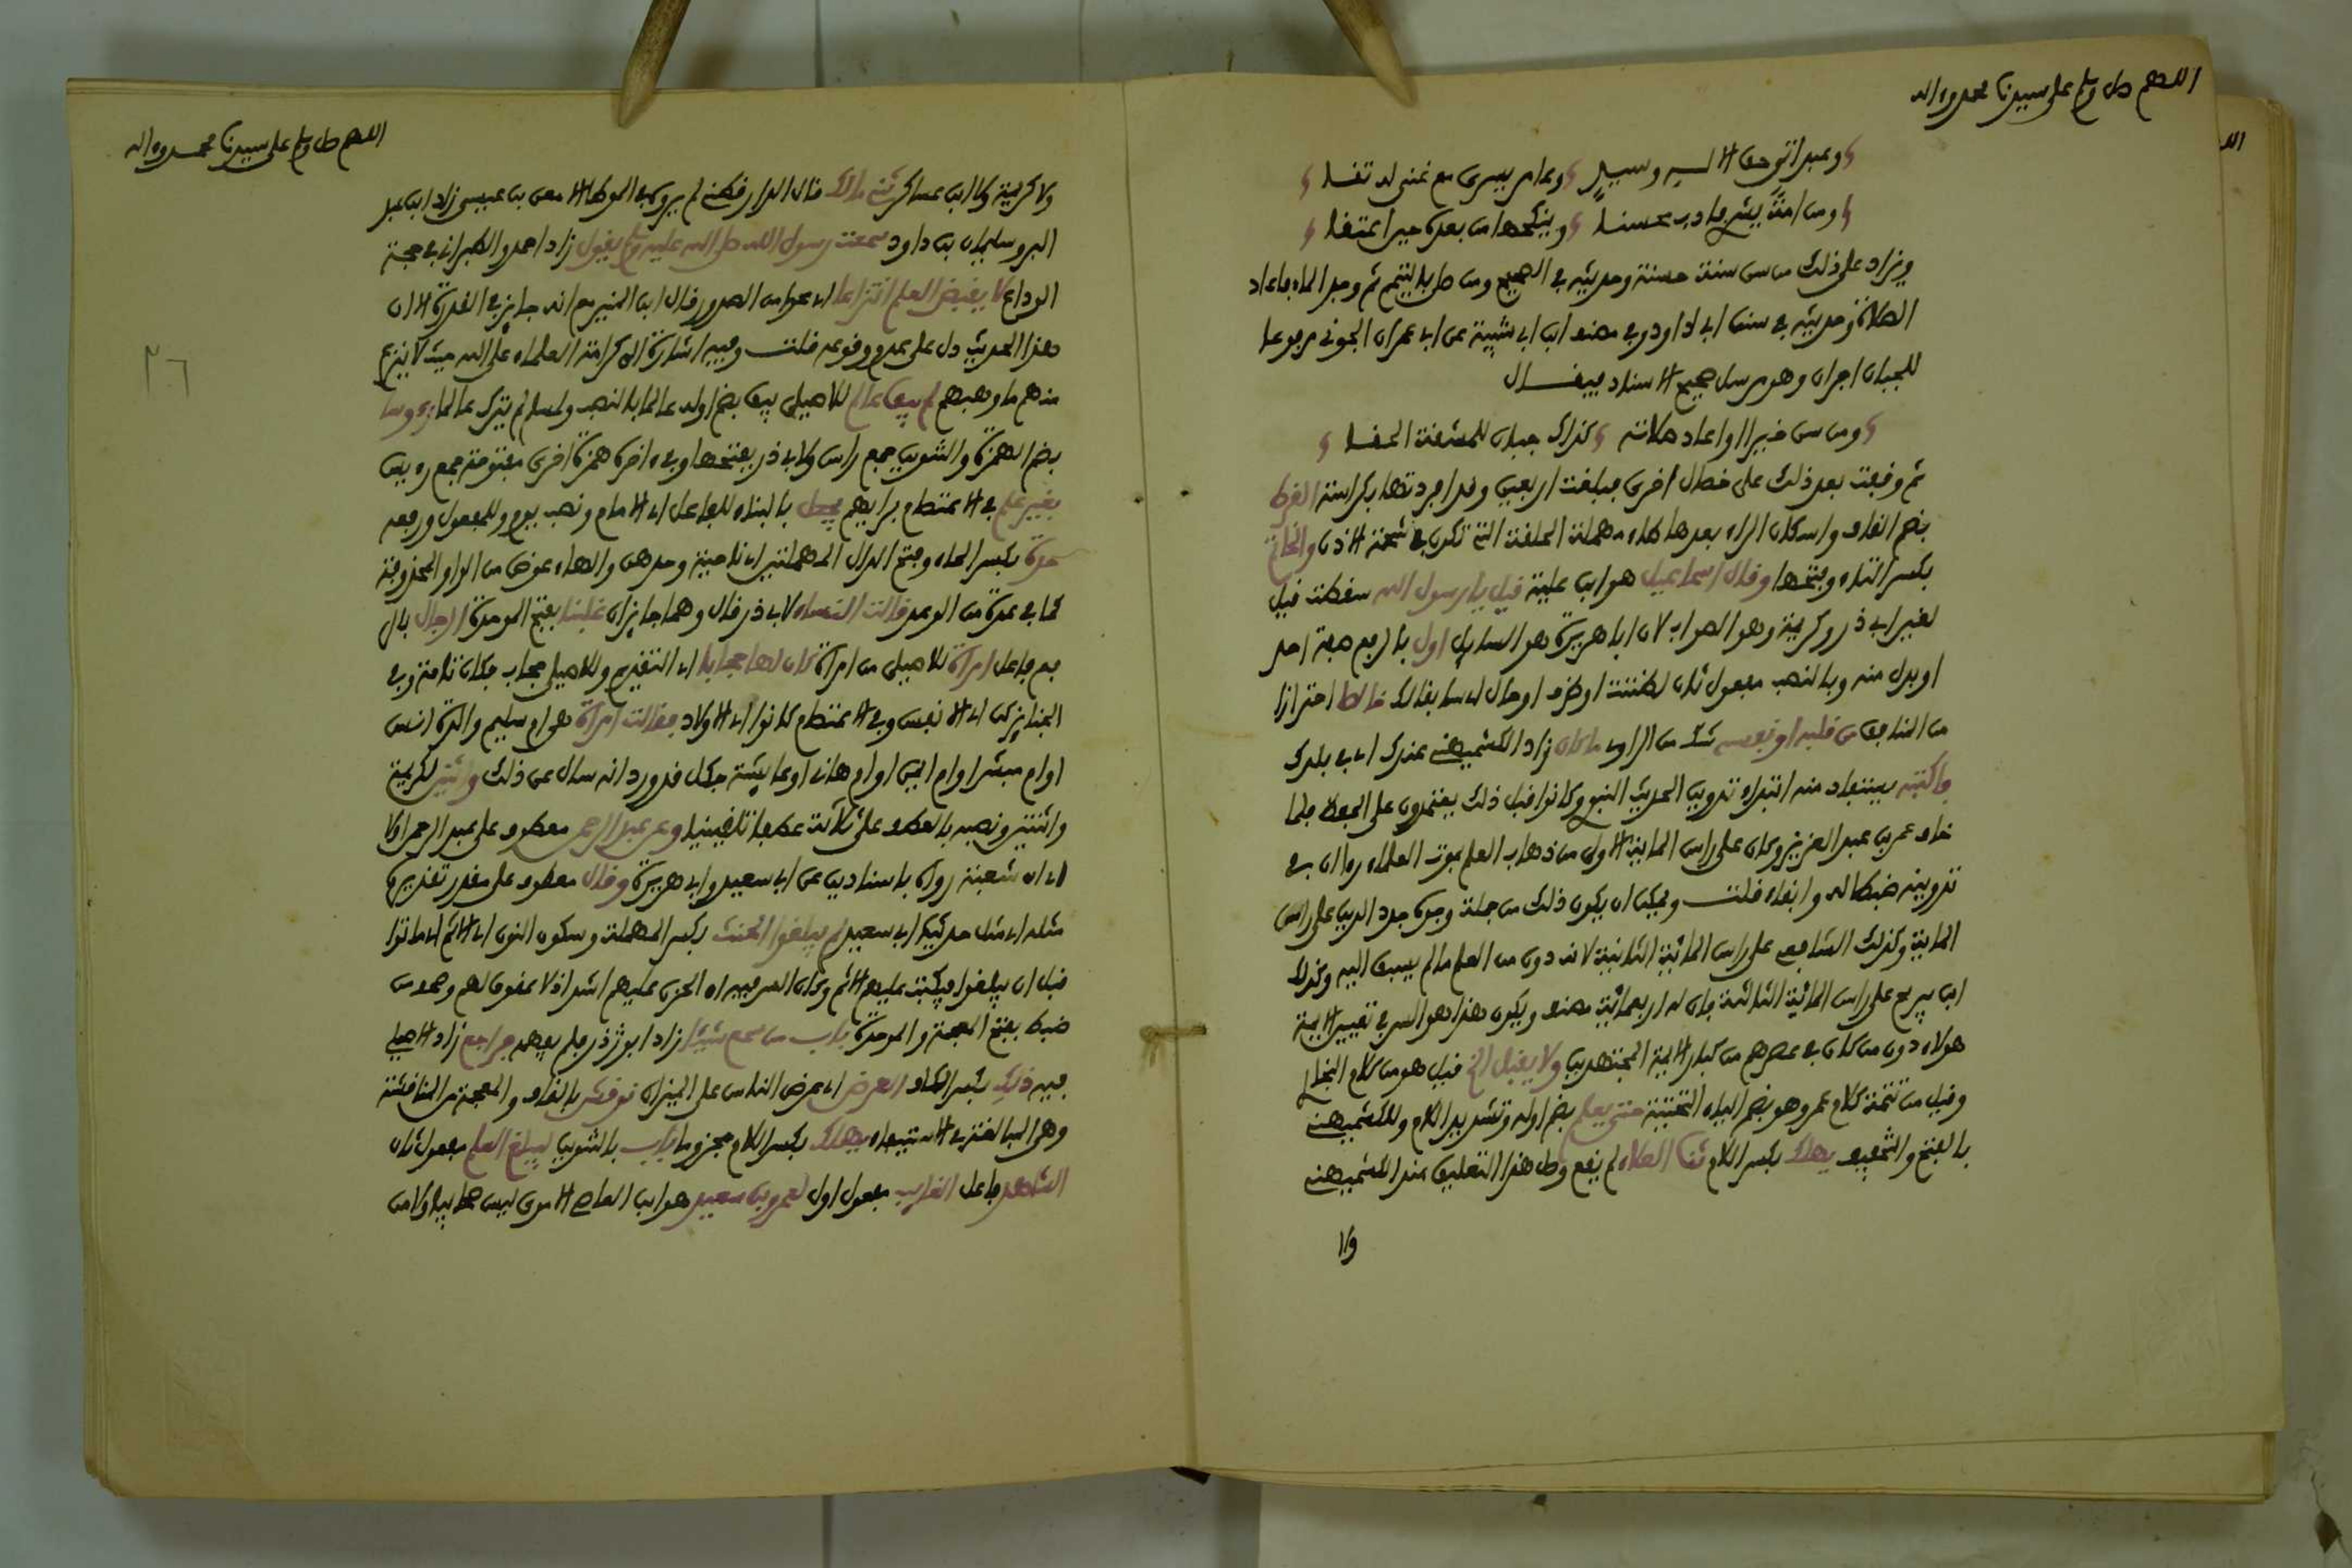 اللهم صل وسلم على سيدنا محمد وءاله
وعبد اتى حق الاله وسيد وعابر يسرى مع غنى له تقا
ومن امة يشرى فادب محسنا وينكحها من بعده حين اعتقا
ويزاد على ذلك من سن سنة حسنة وحديثه في الصحيح ومن صلى بالتيمم ثم وجد الماء فاعاد
الصلاة وحديثه في سنن ابي داود وفي مصنف ابن ابي شيبة عن ابي عمران الجوني مرفوعا
للجبان اجران وهو مرسل صحيح الاسناد فيقال
ومن سن خيرا او اعاد صلاته كذاك جبان
ثم وقفت بعد ذلك على خصال اخرى فبلغت اربعين وقد افردتها بكراسة القرط
بضم القاف واسكان الراء بعدها طاء مهملة الحلقة التي تكون في شحمة الاذن والخاتم
بكسر التاء وفتحها وقال اسماعيل هو ابن علية قيل يا رسول الله سقطت قيل
لغير ابي ذر وكريمة وهو الصواب لان ابا هريرة هو السايل اول بالرفع صفة احد
او بدل منه وبالنصب مفعول ثان لظننت او ظرف او حال اي سابقا لك خالصا احترازا
من المنافق من قلبه او نفسه شك من الراوي ما كان زاد الكشميهني عندك اي في بلدك
فاكتبه يستفاد منه ابتداء تدوين الحديث النبوي وكانوا قبل ذلك يعتمدون على الحفظ فلما
خاف عمر بن عبد العزيز وكان على راس الماية الاولى من ذهاب العلم بموت العلماء رءا ان في
تدوينه ضبطا له وابقاء قلت ويمكن ان يكون ذلك من جملة وجوه جدد الدين على راس
الماية وكذلك الشافعي على راس المائية الثانية لانه دون من العلم ما لم يسبق اليه وكذلك
ابن سريج على راس المائية الثالثة فان له اربعمائة مصنف ويكون هذا هو السر في تعيين الايمة
هولاء دون من كان في عصرهم من كبار الايمة المجتهدين ولا يقبل الخ قيل هو من كلام البخاري
وقيل من تتمة كلام عمر وهو بضم الياء التحتية حتى يعلم بضم اوله وتشديد اللام وللكشميهني
بالفتح والتخفيف يهلك بكسر اللام ثنا العلاء لم يقع وصل هذا التعليق عند الكشميهني
ولا
اللهم صل وسلم على سيدنا محمد وءاله
ولا كريمة ولا ابن عساكر ثني مالك قال الدارقطني لم يروه في الموطا الا معن بن عيسى زاد ابن عبد
البر وسليمان بن داود سمعت رسول الله صلى الله عليه وسلم يقول زاد احمد والطبراني في حجة
الوداع لا يقبض العلم انتزاعا اي محوا من الصدور قال ابن المنير مع انه جايز في القدرة الا ان
هذا الحديث دل على عدم وقوعه قلت وفيه اشارة الى كرامة العلماء على الله حيث لا ينزع
منهم ما وهبهم لم يبق عالم للاصيلي يبق بضم اوله عالما بالنصب ولمسلم لم يترك عالما رءوسا
بضم الهمزة والتنوين جمع راس ولابي ذر بفتحها وفي ءاخره همزة اخرى مفتوحة جمع رءيس
بغير علم في الاعتصام برايهم يجعل بالبناء للفاعل اي الامام ونصب يوم وللمفعول ورفعه
حدة بكسر الحاء وفتح الدال المهملتين اي ناحية وحدهن والهاء عوض من الواو المحذوفة
كما في عدة من الوعد قالت النساء لابي ذر قال وهما جايزان غلبنا بفتح الموحدة الرجال بال
ضم فاعل امراة للاصيلي من امراة كان لها حجابا اي التقديم وللاصيلي حجاب فكان تامة وفي
الجنايز كن اي الانفس وفي الاعتصام كانوا اي الاولاد فقالت امراة هي ام سليم والدة انس
او ام مبشر او ام ايمن او ام هانئ او عايشة فكل قد ورد انه سال عن ذلك واثنين لكريمة
واثنتين ونصبه بالعطف على ثلاثة عطفا تلقينيا وعن عبد الرحمن معطوف على عبد الرحمن اولا
اي ان شعبة رواه باسنادين عن ابي سعيد وابي هريرة وقال معطوف على مقدر تقديره
مثله اي مثل حديث ابي سعيد لم يبلغوا الحنث بكسر المهملة وسكون النون اي الاثم اي ماتوا
قبل ان يبلغوا فيكتب عليهم الاثم وكان السر فيه ان الحزن عليهم اشد اذ لا عقوق لهم وحدس
ضبط بفتح المعجمة والموحدة باب من سمع شيئا زاد ابو ذر فلم يفهمه فراجع زاد الاصيلي
فيه ذلك بكسر الكاف العرض اي عرض الناس على الميزان نوقش بالقاف والمعجمة من المناقشة
وهي المبالغة في الاستيفاء يهلك بكسر اللام مجزوما باب بالتنوين ليبلغ العلم مفعول ثان
الشاهد فاعل الغايب مفعول اول لعمرو بن سعيد هو ابن العاصي الاموي ليس صحابيا ولا من
٢٦